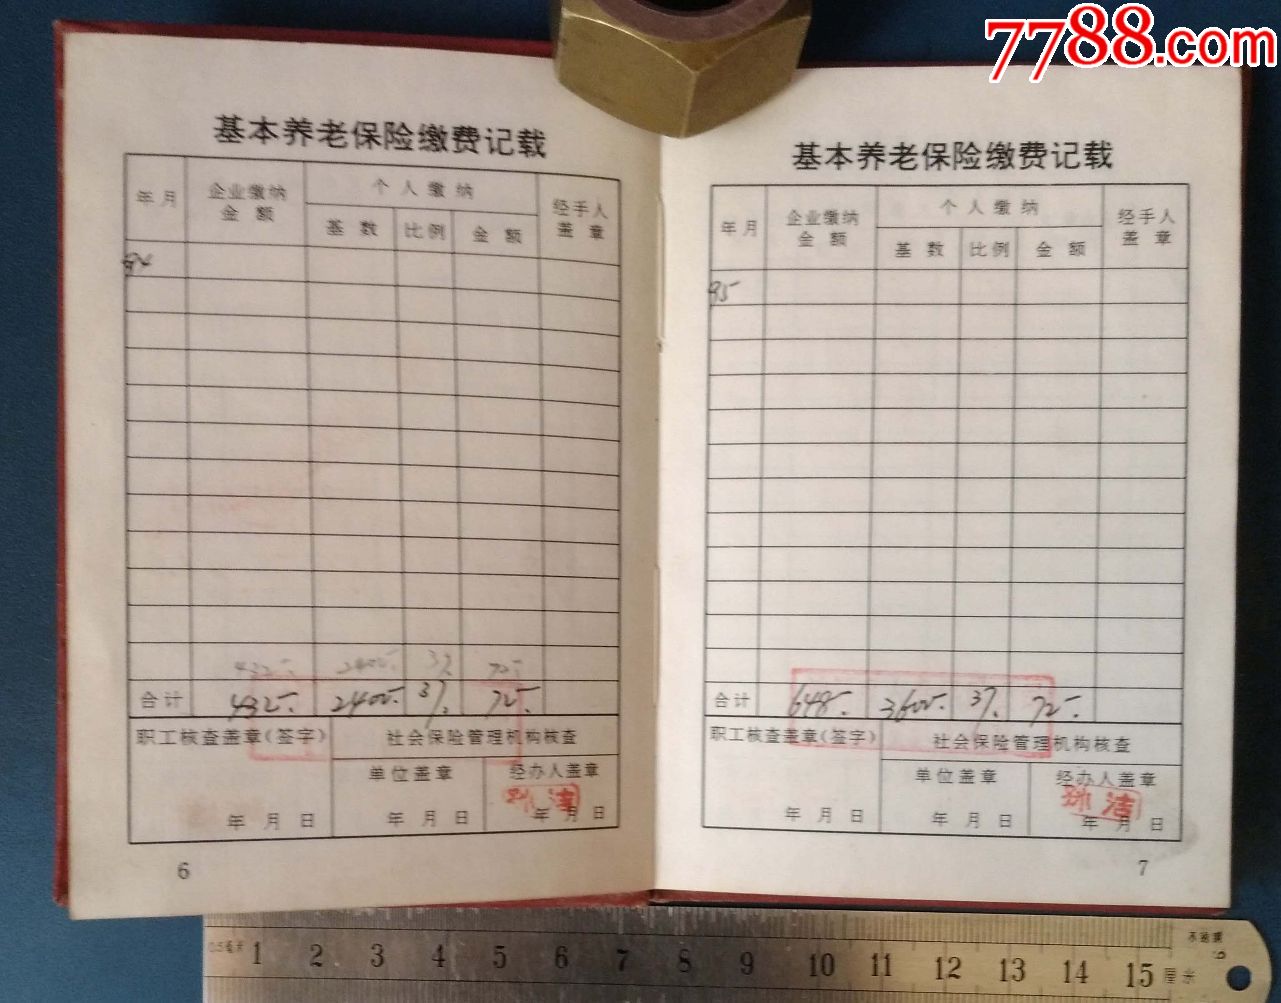 7788.com
基本养老保险缴费记载
年月 企业缴纳金额 个人缴纳 经手人盖章
基数 比例 金额
94
432- 2400- 3% 72-
合计 432- 2400- 3% 72-
职工核查盖章(签字) 社会保险管理机构核查
单位盖章 经办人盖章
年 月 日 年 月 日 年 月 日
6
基本养老保险缴费记载
年月 企业缴纳金额 个人缴纳 经手人盖章
基数 比例 金额
95
合计 648- 3600- 3% 72-
职工核查盖章(签字) 社会保险管理机构核查
单位盖章 经办人盖章
年 月 日 年 月 日 年 月 日
7
0.5毫米 1 2 3 4 5 6 7 8 9 10 11 12 13 14 15 厘米